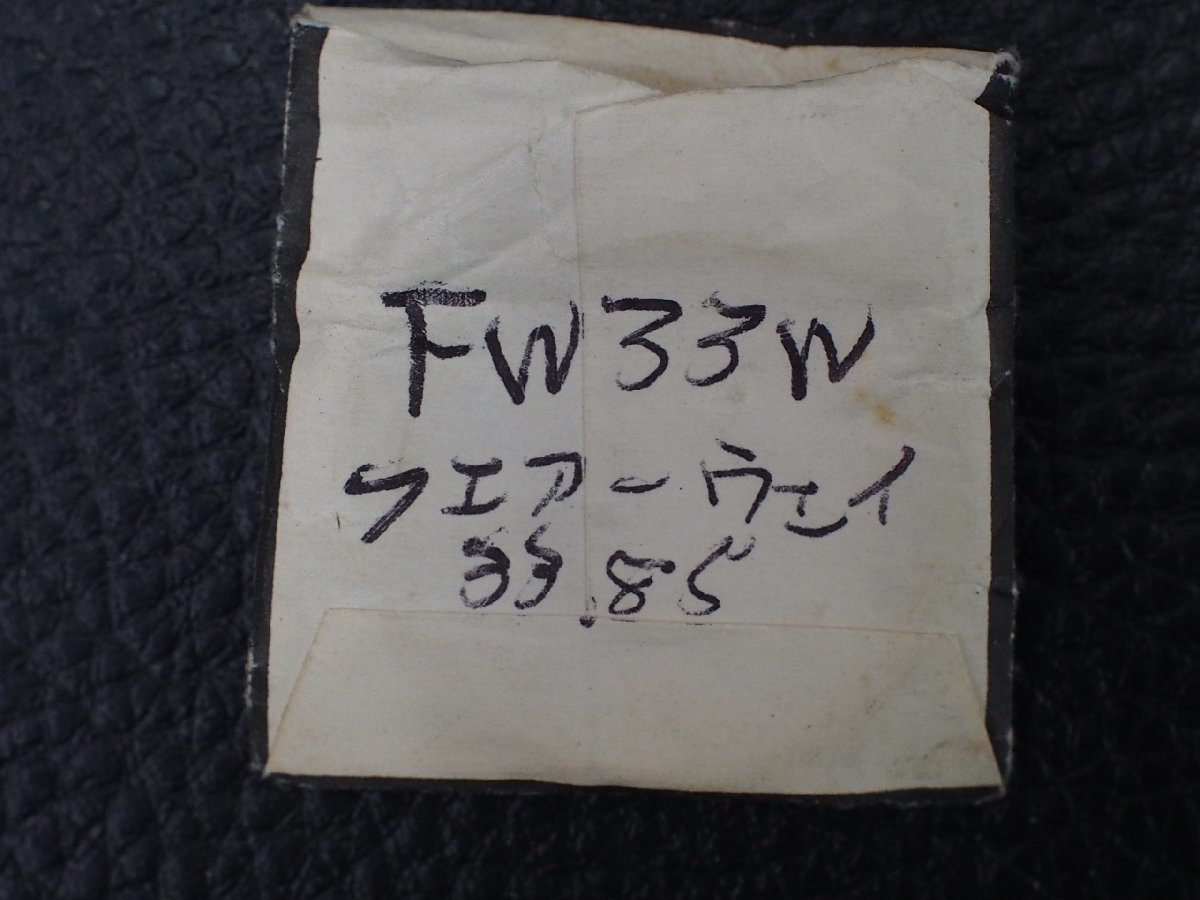 FW33W
フエアーウェイ
33.85